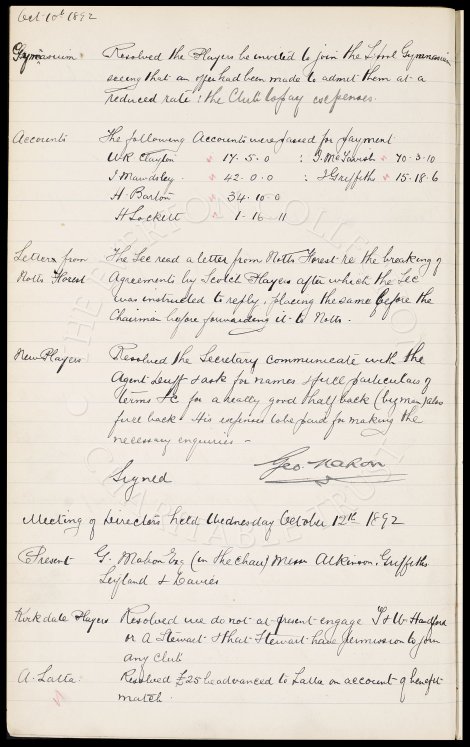 Oct 10th 1892
Gymnasium Resolved the Players be invited to join the L'pool Gymnasium
seeing that an offer had been made to admit them at a
reduced rate: the Club to pay expenses.
Accounts The following Accounts were passed for payment
W R Clayton 17.5.0 : J. McTavish 70.3.10
J Mawdsley 42.0.0 : J Griffiths 15.18.6
H Barton 34.10.0
H Lockett 1.16.11
Letter from The Sec read a letter from Notts Forest re the breaking of
Notts Forest Agreements by Scotch Players after which the Sec
was instructed to reply, placing the same before the
Chairman before forwarding it to Notts.
New Players Resolved the Secretary communicate with the
Agent & ask for names & full particulars of
terms &c for a really good Half back (big man) also
full back. His expenses to be paid for making the
necessary enquiries -
Signed Geo. Mahon
Meeting of Directors held Wednesday October 12th 1892
Present G. Mahon Esq (in the chair) Messrs Atkinson, Griffiths
Leyland & Davies
Kirkdale Players Resolved we do not at present engage T & W Handford
or A Stewart & that Stewart have permission to join
any club
A. Latta Resolved £25 be advanced to Latta on account of benefit
match.
THE EVERTON COLLECTION
CHARITABLE TRUST